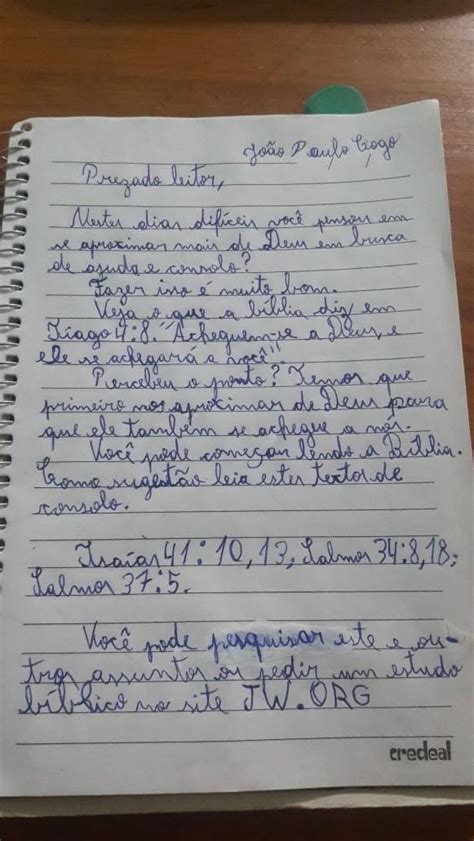 João Paulo Gogo
Prezado leitor,
Nestes dias difíceis você pensou em
se aproximar mais de Deus em busca
de ajuda e consolo?
Fazer isso é muito bom.
Veja o que a bíblia diz em
Tiago 4:8. "Acheguem-se a Deus, e
ele se achegará a você".
Percebeu o ponto? Temos que
primeiro nos aproximar de Deus para
que ele também se achegue a nós.
Você pode começar lendo a Bíblia.
Como sugestão leia estes textos de
consolo.
Isaías 41:10,13; Salmos 34:8,18;
Salmos 37:5.
Você pode pesquisar este e ou-
tros assuntos ou pedir um estudo
bíblico no site JW.ORG
credeal